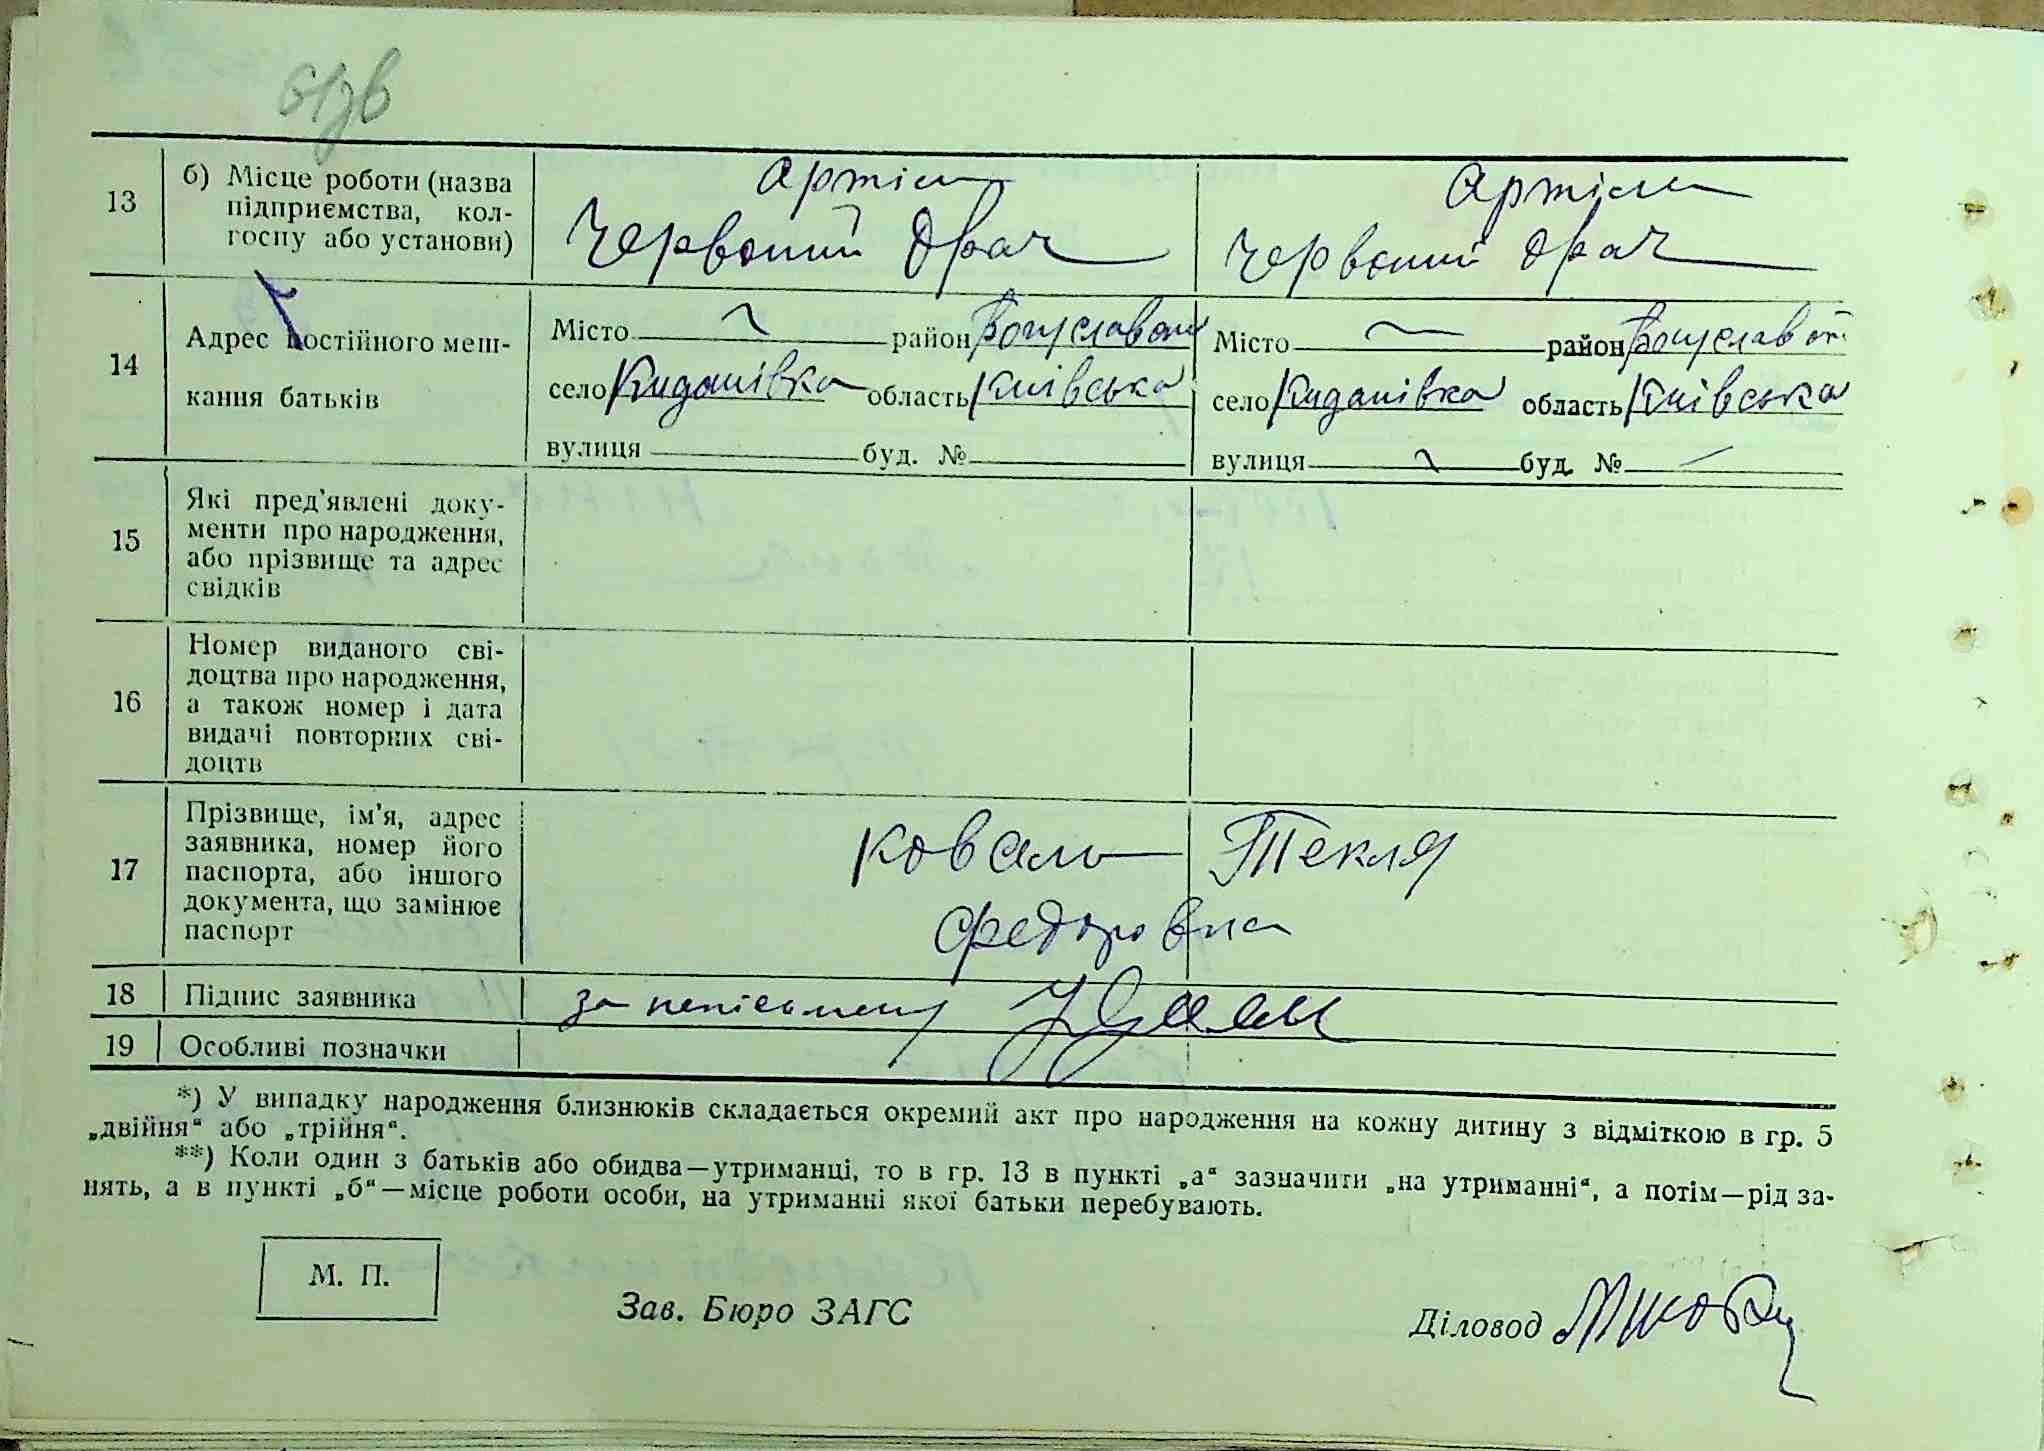 61зв
13 б) Місце роботи (назва підприємства, колгоспу або установи)
Артіль
Червоний Орач
Артіль
Червоний Орач
14 Адрес постійного меш-
кання батьків
Місто район Богуславськ
село Киданівка область Київська
вулиця буд. №
Місто район Богуславськ
село Киданівка область Київська
вулиця буд. №
15 Які пред'явлені доку-
менти про народження,
або прізвище та адрес
свідків
16 Номер виданого сві-
доцтва про народження,
а також номер і дата
видачі повторних сві-
доцтв
17 Прізвище, ім'я, адрес
заявника, номер його
паспорта, або іншого
документа, що замінює
паспорт
Коваль Текля
Федоровна
18 Підпис заявника
за неписьмену
19 Особливі позначки
*) У випадку народження близнюків складається окремий акт про народження на кожну дитину з відміткою в гр. 5
„двійня“ або „трійня“.
**) Коли один з батьків або обидва—утриманці, то в гр. 13 в пункті „а“ зазначити „на утриманні“, а потім—рід за-
нять, а в пункті „б“—місце роботи особи, на утриманні якої батьки перебувають.
М. П.
Зав. Бюро ЗАГС
Діловод